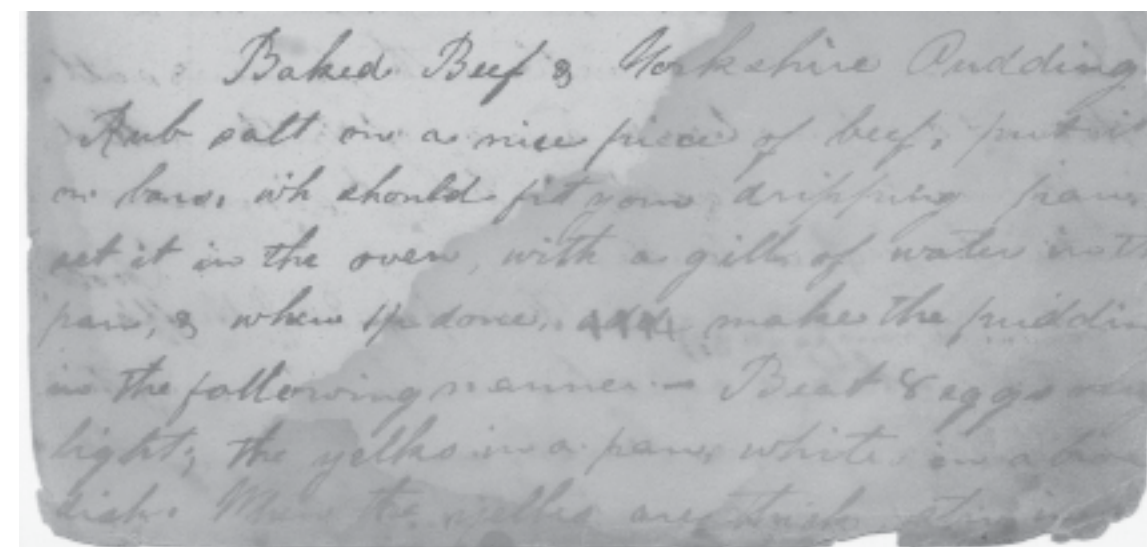 Baked Beef & Yorkshire Pudding
Rub salt on a nice piece of beef, put it
on bars, wh should fit your dripping pan,
set it in the oven, with a gill of water in th
pan, & when done, make the puddin
in the following manner - Beat 8 eggs
light; the yelks in a pan, white in a
dish. When the yelks are thick stir